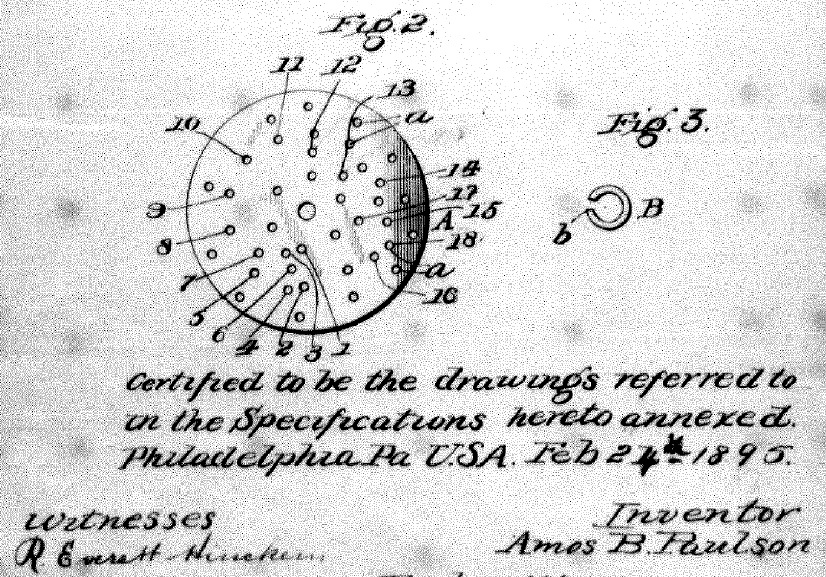 Fig. 2.
11 12
13
10 a
Fig. 3.
14
17
9 15
A B
8 18 b
7 a
5 16
6 4 2 3 1
Certified to be the drawings referred to
in the Specifications hereto annexed.
Philadelphia Pa U.S.A. Feb 24th 1895.
Witnesses Inventor
R. Everett Amos B. Paulson